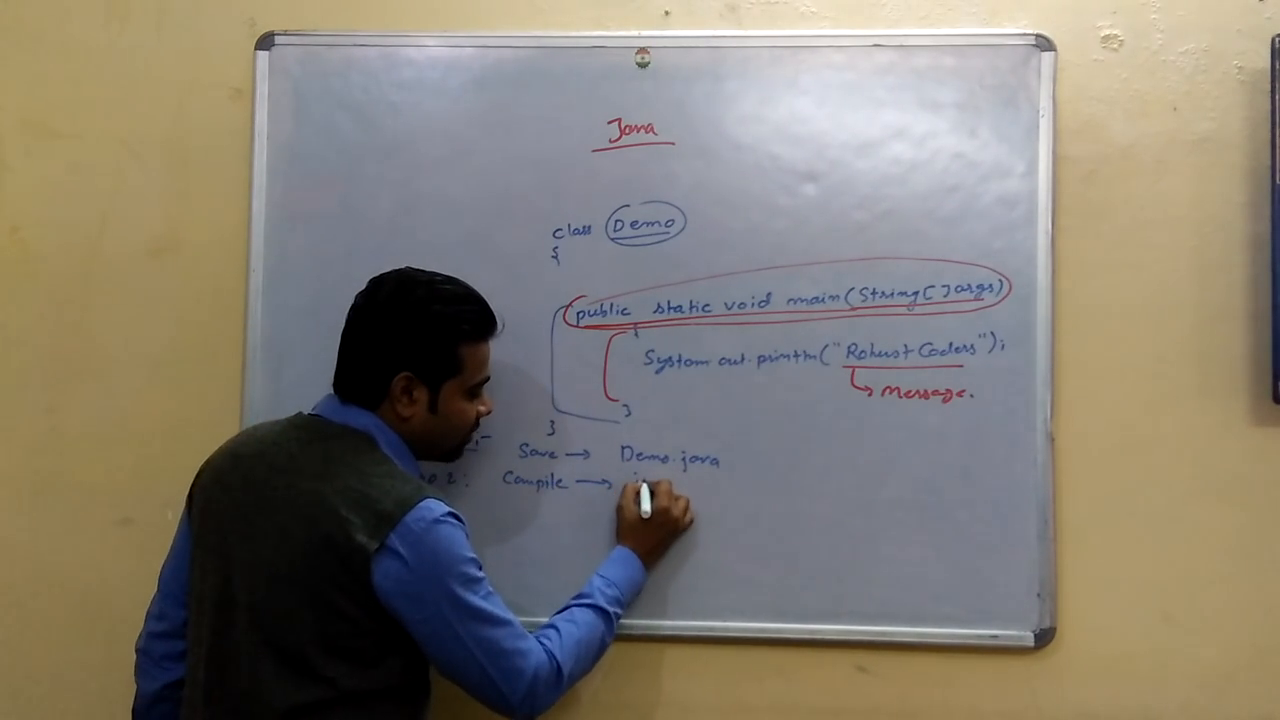 Java
class Demo
{
public static void main(String[]args)
{
System.out.println("Robust Coders");
→ message.
}
}
Save → Demo.java
2: Compile → j